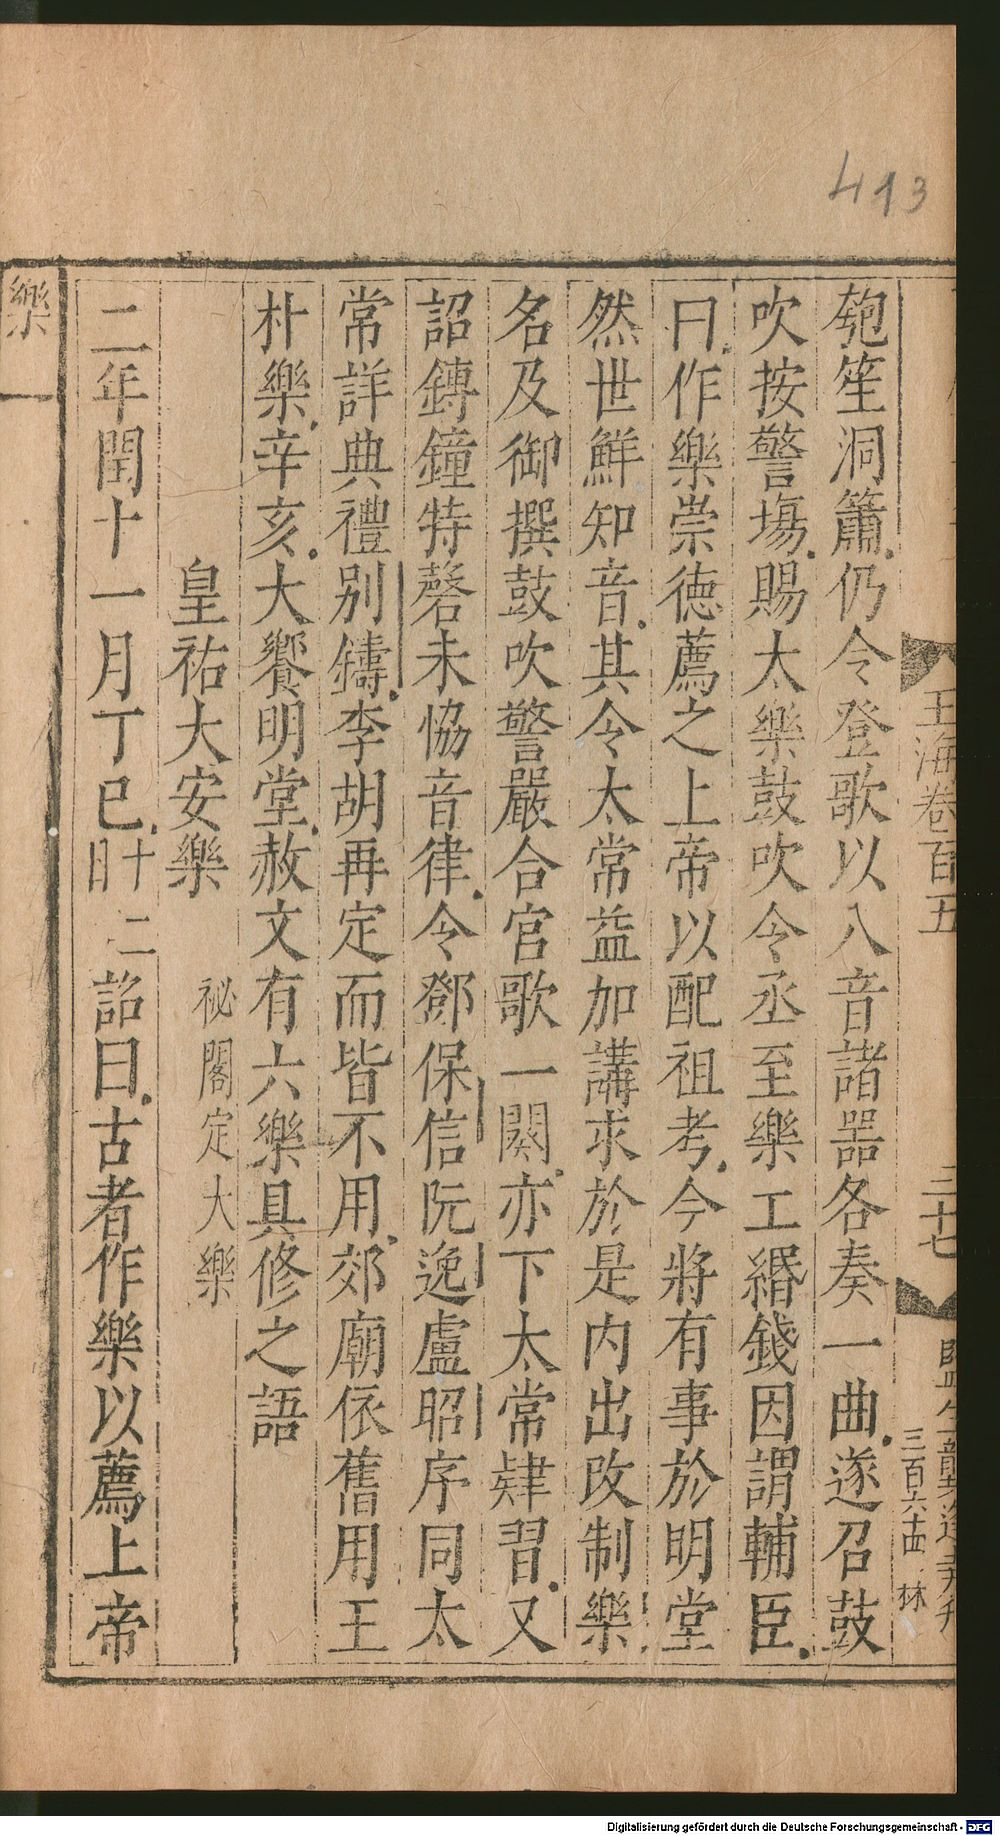 413
玉海卷百五
三十七
三百六十四 林
匏笙洞簫仍令登歌以八音諸器各奏一曲遂召鼓
吹按警塲賜太樂鼓吹令丞至樂工緡錢因謂輔臣
曰作樂崇德薦之上帝以配祖考今將有事於明堂
然世鮮知音其令太常益加講求於是內出改制樂
名及御撰鼓吹警嚴合宮歌一闋亦下太常肄習又
詔鏄鐘特磬未恊音律令鄧保信阮逸盧昭序同太
常詳典禮別鑄李胡再定而皆不用郊廟依舊用王
朴樂辛亥大饗明堂赦文有六樂具修之語
皇祐大安樂 祕閣定大樂
二年閏十一月丁巳十二日詔曰古者作樂以薦上帝
樂
Digitalisierung gefördert durch die Deutsche Forschungsgemeinschaft - DFG